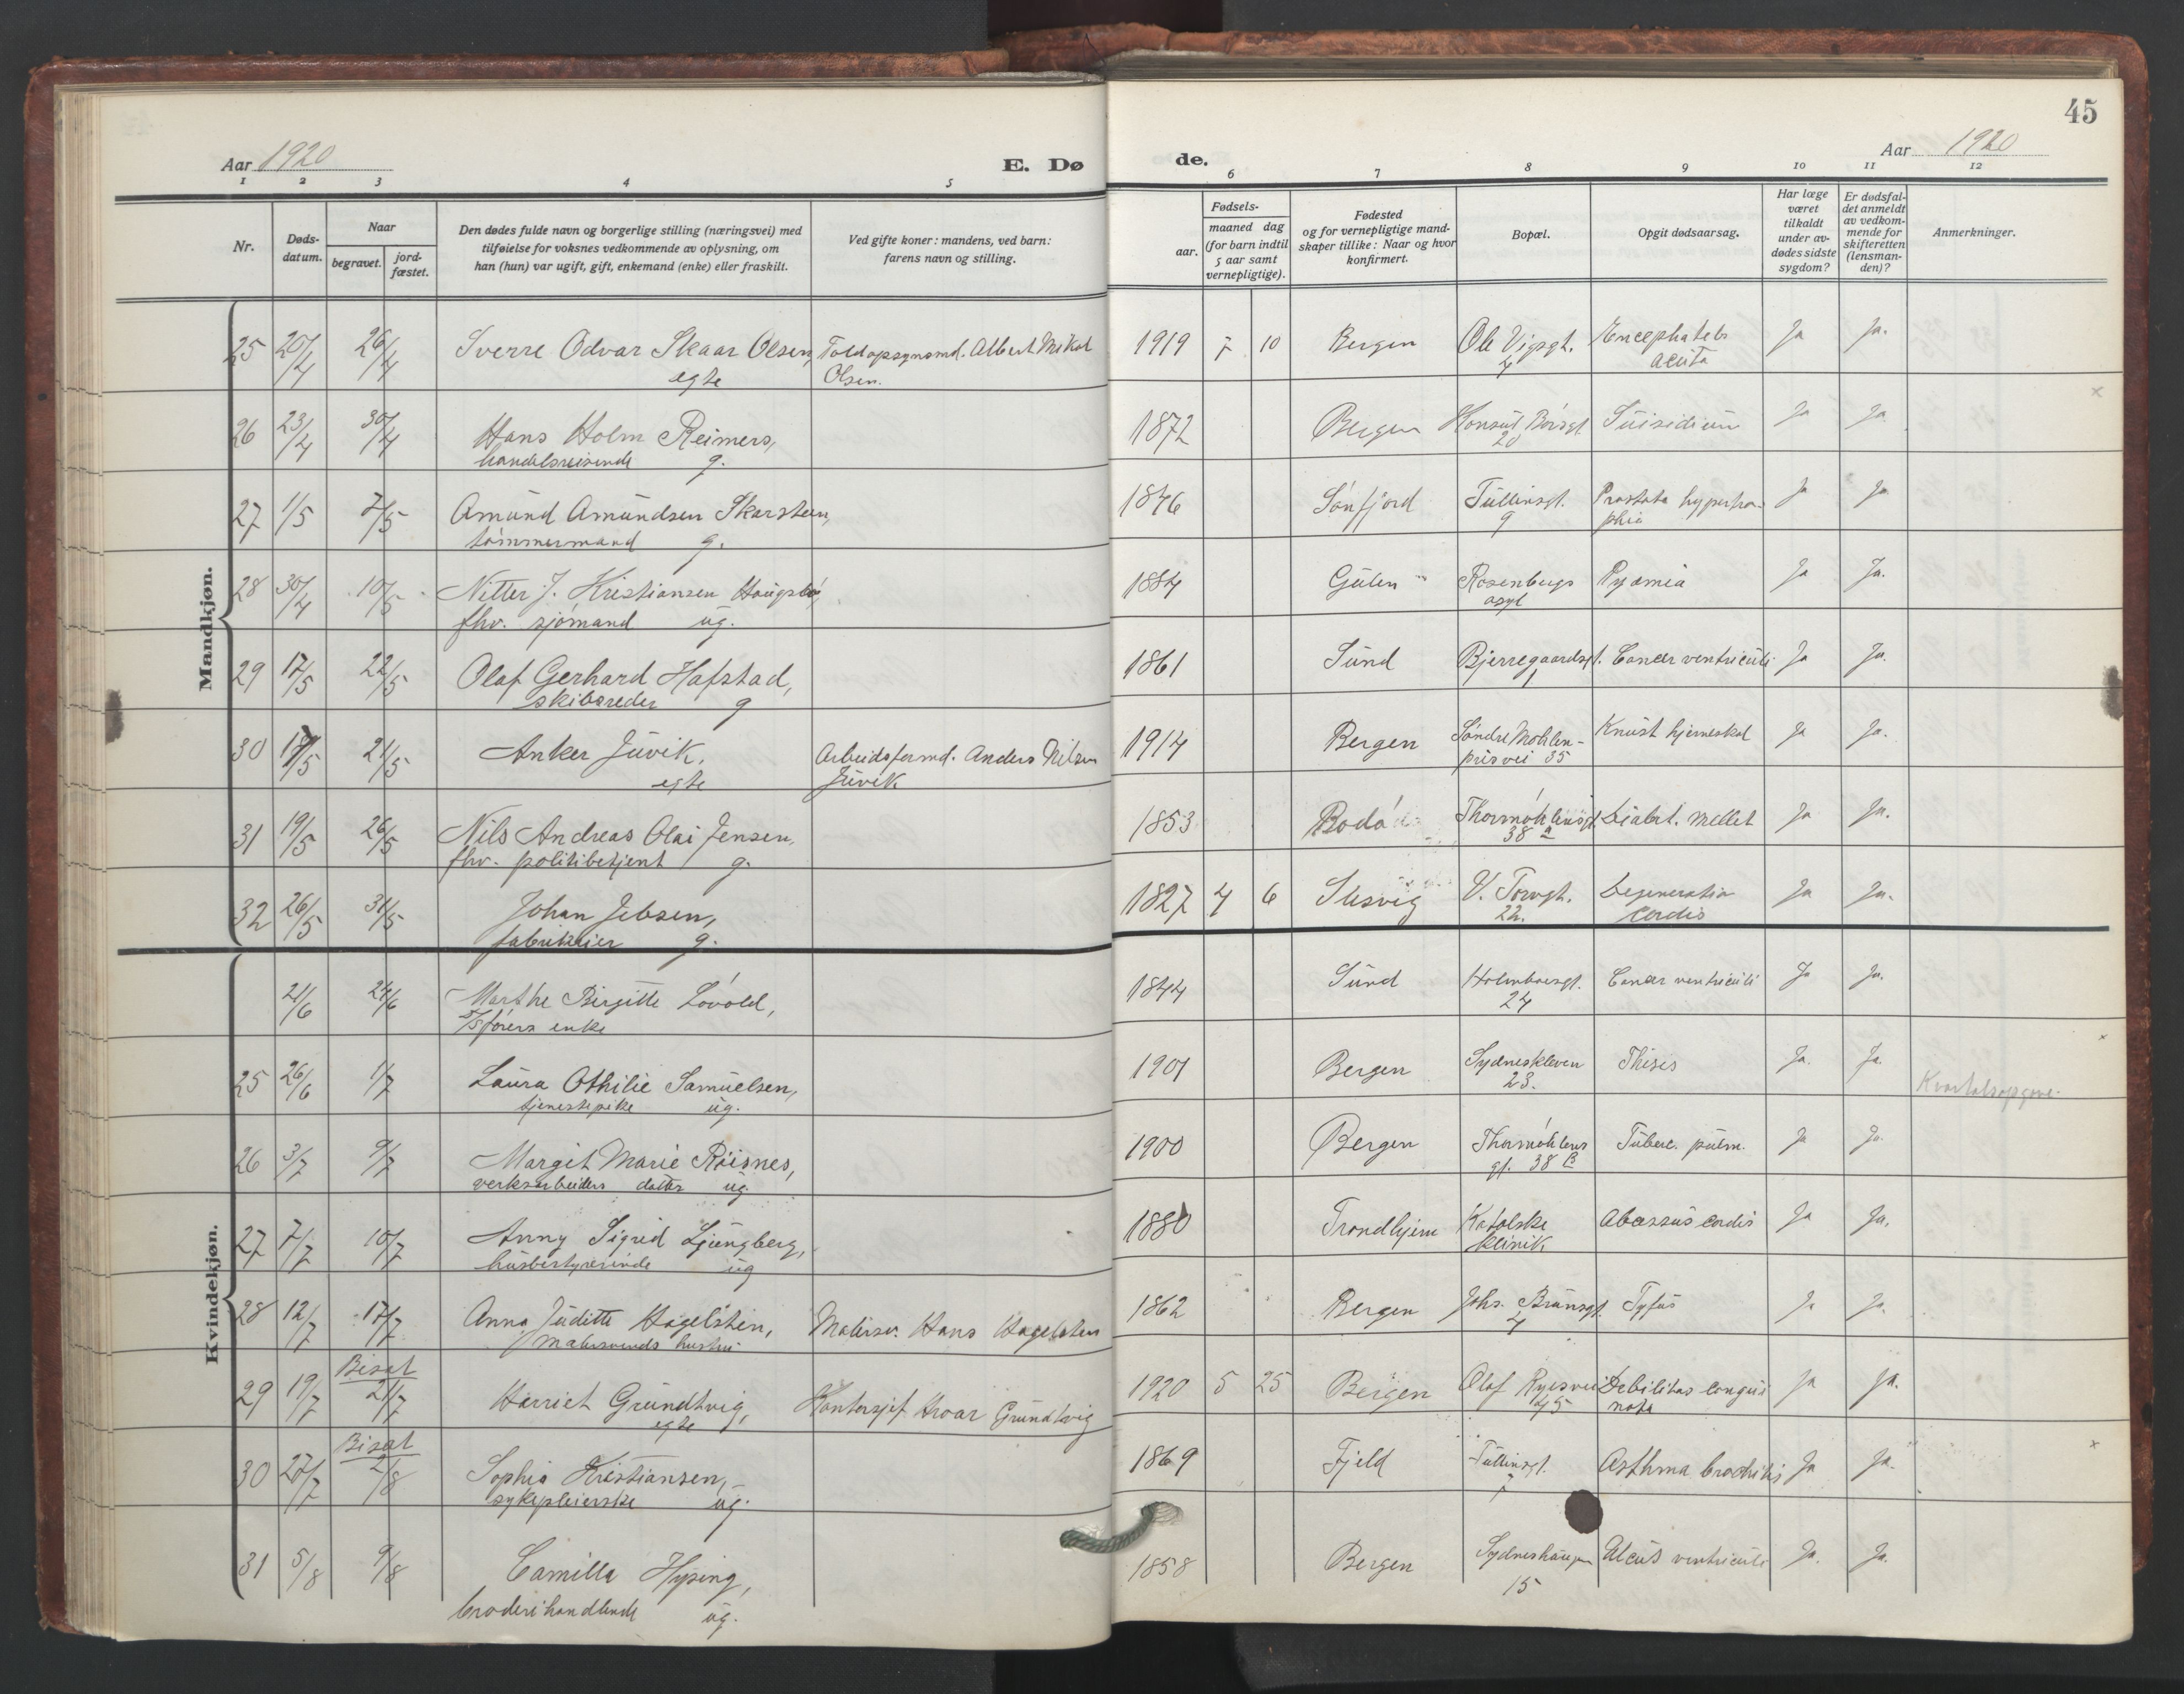 45
Aar 1920 E. Dø de. Aar 1920
1 2 3 4 5 6 7 8 9 10 11 12
Nr.
Døds-
datum.
Naar
begravet.
jord-
fæstet.
Den dødes fulde navn og borgerlige stilling (næringsvei) med
tilføielse for voksnes vedkommende av oplysning, om
han (hun) var ugift, gift, enkemand (enke) eller fraskilt.
Ved gifte koner: mandens, ved barn:
farens navn og stilling.
Fødsels-
aar.
maaned dag
(for barn indtil
5 aar samt
vernepligtige).
Fødested
og for vernepligtige mand-
skaper tillike: Naar og hvor
konfirmert.
Bopæl.
Opgit dødsaarsag.
Har læge
været
tilkaldt
under av-
dødes sidste
sygdom?
Er dødsfal-
det anmeldt
av vedkom-
mende for
skifteretten
(lensman-
den)?
Anmerkninger.
Mandkjøn.
25 20/4 26/4 Sverre Odvar Skaar Olsen, Toldopsynsmd. Albert Mikal 1919 7 10 Bergen Ole Vigsgt. Encephatels Ja Ja.
egte Olsen. 4 acuta
26 23/4 30/4 Hans Holm Reimers, 1872 Bergen Konsul Børsgt. Suisidium Ja Ja
handelsreisende g. 20
27 1/5 7/5 Amund Amundsen Skarsteen, 1846 Sønfjord Tullinsgt. Prostata hypertro- Ja Ja
tømmermand g. 9 phia
28 30/4 10/5 Nitter J. Kristiansen Haugsbø, 1884 Gulen Rosenbergs Pyæmia Ja Ja.
fhv. sjømand ug. asyl
29 17/5 22/5 Olaf Gerhard Hafstad, 1861 Sund Bjerregaardsgt. Cancer ventriculi Ja Ja.
skibsreder g 1
30 17/5 21/5 Anker Juvik, Arbeidsformd. Anders Nilsen 1914 Bergen Søndre Møhlen- Knust hjerneskal Ja Ja.
egte Juvik prisvei 35
31 19/5 26/5 Nils Andreas Olai Jensen, 1853 Bodø Thormøhlensgt. Diabet. mellet Ja Ja.
fhv. politibetjent g. 38 a
32 26/5 31/5 Johan Jebsen, 1827 4 6 Slesvig V. Torvgt. Degeneratio Ja Ja.
fabrikeier g. 22. Cordis
Kvindekjøn.
21/6 24/6 Marthe Birgitte Løvold, 1844 Sund Holmboesgt. Cancer ventriculi Ja Ja.
S/S førers enke 24
25 26/6 1/7 Laura Othilie Samuelsen, 1901 Bergen Sydneskleven Thisis Ja. Ja. Kvartalsopgave.
tjenestepike ug. 23.
26 3/7 9/7 Margit Marie Røisnes, 1900 Bergen Thormøhlens Tuberc. pulm. Ja Ja.
verksarbeiders datter ug. gt. 38 B
27 7/7 10/7 Anny Sigrid Ljungberg, 1880 Trondhjem Katolske Abcessus cordis Ja Ja.
husbestyrerinde ug klinik
28 12/7 17/7 Anna Juditte Hagelsten, Malersv. Hans Hagelsten 1862 Bergen Johs. Brunsgt. Tyfus Ja Ja.
Malersvends hustru 4
29 19/7 Bisat 21/7 Harriet Grundtvig, Kontorsjef Hroar Grundtvig 1920 5 25 Bergen Olaf Ryesvei Debilitas congeni Ja Ja.
egte 45 nata
30 27/7 Bisat 2/8 Sophia Kristiansen, 1869 Fjeld Tullinsgt. Asthma brochitis Ja Ja.
sykepleierske ug.
31 5/8 9/8 Camilla Hysing, 1858 Bergen Sydneshaugen Ulcus ventriculi Ja. Ja.
broderihandlende ug. 15